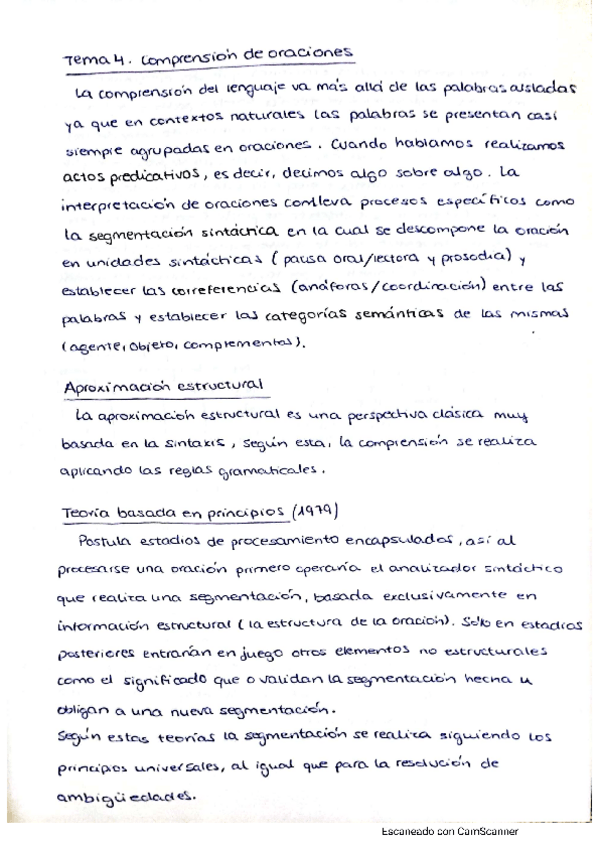 Tema 4. Comprensión de oraciones
La comprensión del lenguaje va más allá de las palabras aisladas
ya que en contextos naturales las palabras se presentan casi
siempre agrupadas en oraciones. Cuando hablamos realizamos
actos predicativos, es decir, decimos algo sobre algo. La
interpretación de oraciones conlleva procesos específicos como
la segmentación sintáctica en la cual se descompone la oración
en unidades sintácticas (pausa oral/lectora y prosodia) y
establecer las correferencias (anáforas/coordinación) entre las
palabras y establecer las categorías semánticas de las mismas
(agente, objeto, complementos).
Aproximación estructural
La aproximación estructural es una perspectiva clásica muy
basada en la sintaxis, según esta, la comprensión se realiza
aplicando las reglas gramaticales.
Teoría basada en principios (1979)
Postula estadios de procesamiento encapsulados, así al
procesarse una oración primero operaría el analizador sintáctico
que realiza una segmentación, basada exclusivamente en
información estructural (la estructura de la oración). Sólo en estadios
posteriores entrarían en juego otros elementos no estructurales
como el significado que o validan la segmentación hecha u
obligan a una nueva segmentación.
Según estas teorías la segmentación se realiza siguiendo los
principios universales, al igual que para la resolución de
ambigüedades.
Escaneado con CamScanner